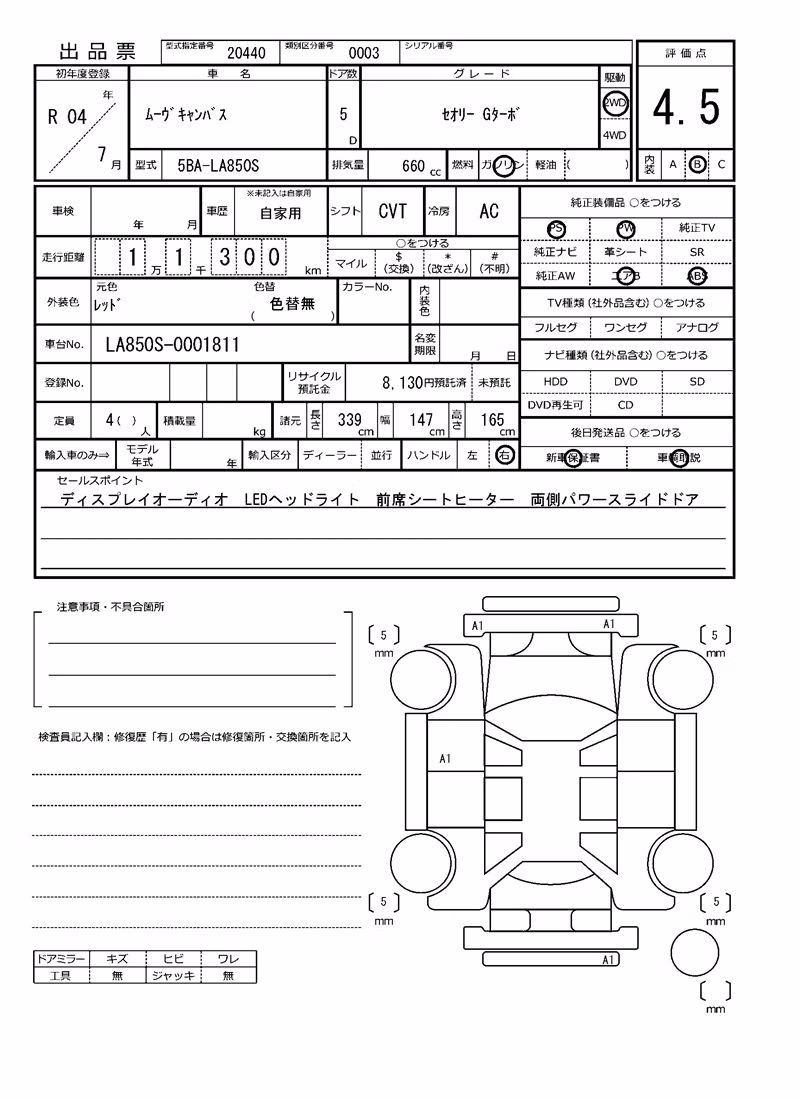 出品票 型式指定番号 20440 類別区分番号 0003 シリアル番号
評価点
4.5
内装 A B C
初年度登録 車名 ドア数 グレード 駆動
R 04 年 7 月 ムーヴキャンバス 5 D セオリー Gターボ 2WD 4WD
型式 5BA-LA850S 排気量 660 cc 燃料 ガソリン 軽油 ( )
車検 年 月 車歴 ※未記入は自家用 自家用 シフト CVT 冷房 AC
走行距離 1 万 1 千 3 0 0 km
○をつける
マイル $ (交換) * (改ざん) # (不明)
外装色 元色 レッド 色替 ( 色替無 ) カラーNo. 内装色
車台No. LA850S-0001811 名変期限 月 日
登録No. リサイクル預託金 8,130円預託済 未預託
定員 4 ( ) 人 積載量 kg 諸元 長さ 339 cm 幅 147 cm 高さ 165 cm
輸入車のみ⇒ モデル年式 年 輸入区分 ディーラー 並行 ハンドル 左 右
純正装備品 ○をつける
PS PW 純正TV
純正ナビ 革シート SR
純正AW エアB ABS
TV種類(社外品含む)○をつける
フルセグ ワンセグ アナログ
ナビ種類(社外品含む)○をつける
HDD DVD SD
DVD再生可 CD
後日発送品 ○をつける
新車保証書 車輌取説
セールスポイント
ディスプレイオーディオ LEDヘッドライト 前席シートヒーター 両側パワースライドドア
注意事項・不具合箇所
検査員記入欄：修復歴「有」の場合は修復箇所・交換箇所を記入
ドアミラー キズ ヒビ ワレ
工具 無 ジャッキ 無
A1 A1
5 mm 5 mm
A1
5 mm 5 mm
A1
mm